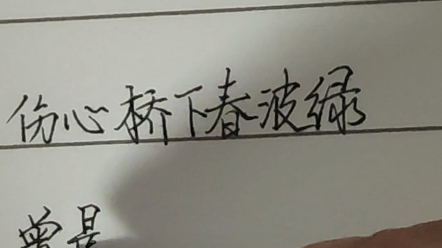 伤心桥下春波绿
曾是